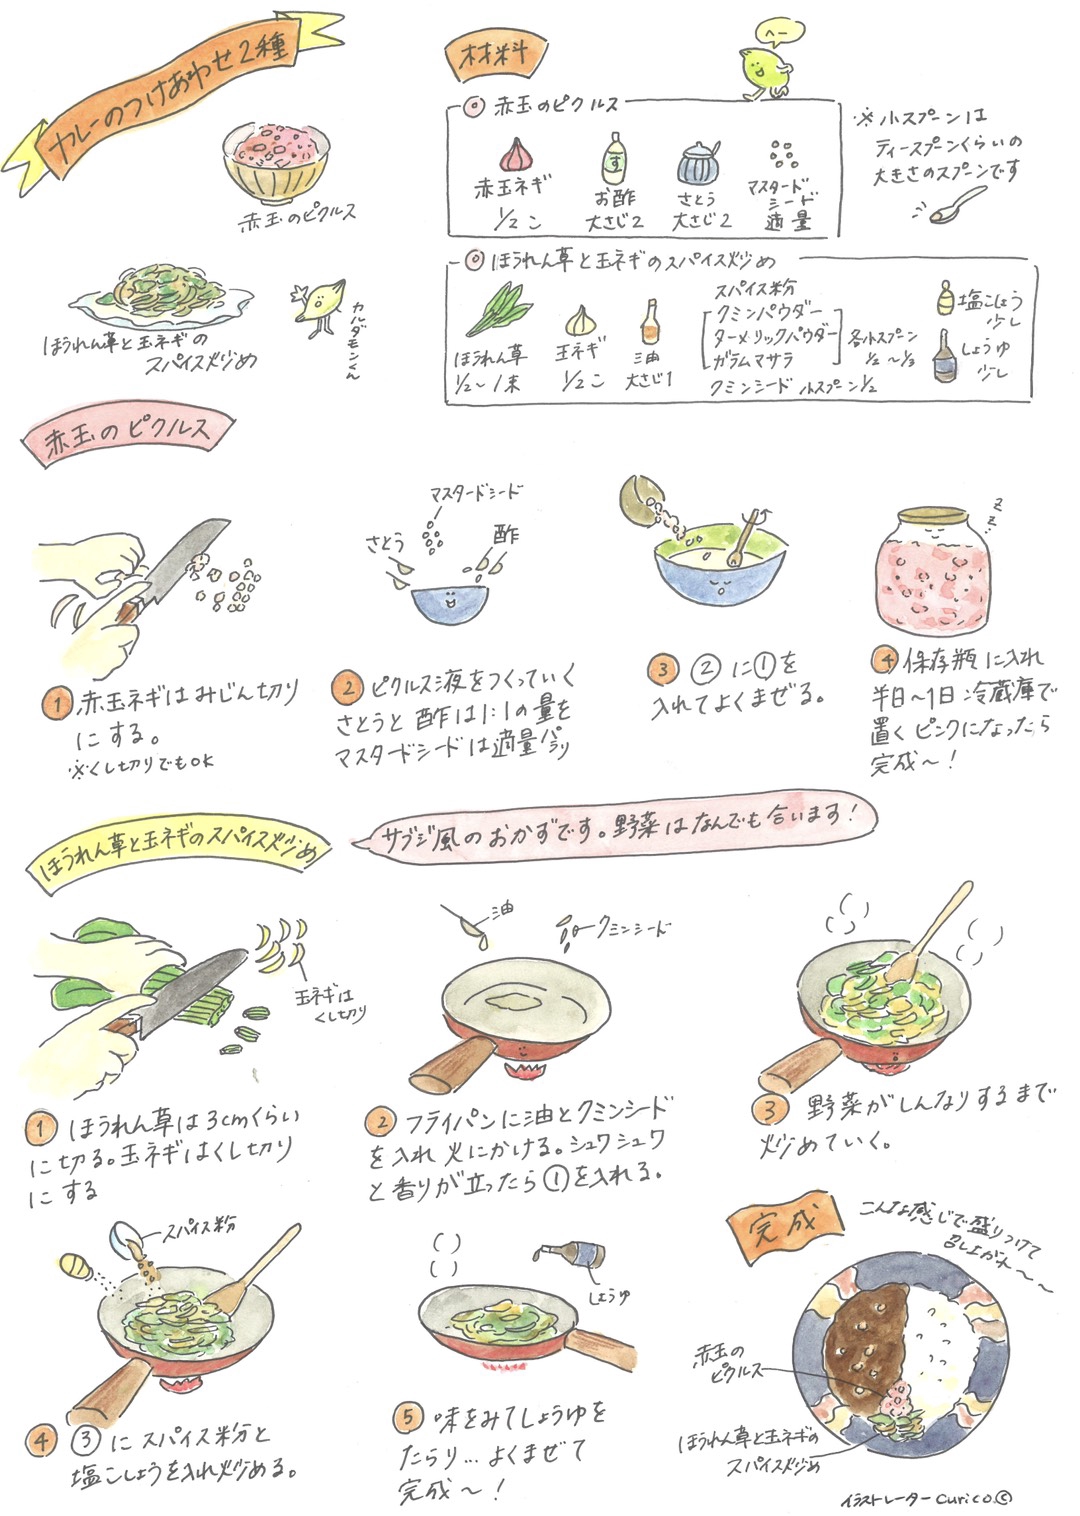 カレーのつけあわせ2種
赤玉のピクルス
ほうれん草と玉ネギの
スパイス炒め
カルダモンくん
材料
へー
赤玉のピクルス
赤玉ネギ
1/2こ
す
お酢
大さじ2
さとう
大さじ2
マスタード
シード
適量
※小スプーンは
ティースプーンくらいの
大きさのスプーンです
ほうれん草と玉ネギのスパイス炒め
ほうれん草
1/2〜1束
玉ネギ
1/2こ
油
大さじ1
スパイス粉
クミンパウダー
ターメリックパウダー
ガラムマサラ
各小スプーン
1/2〜1/3
クミンシード 小スプーン1/2
塩こしょう
少し
しょうゆ
少し
赤玉のピクルス
マスタードシード
さとう
酢
z
z
① 赤玉ネギはみじん切り
にする。
※くし切りでもOK
② ピクルス液をつくっていく
さとうと酢は1:1の量を
マスタードシードは適量パラリ
③ ②に①を
入れてよくまぜる。
④ 保存瓶に入れ
半日〜1日冷蔵庫で
置くピンクになったら
完成〜!
ほうれん草と玉ネギのスパイス炒め
サブジ風のおかずです。野菜はなんでも合います!
玉ネギは
くし切り
油
クミンシード
① ほうれん草は3cmくらい
に切る。玉ネギはくし切り
にする
② フライパンに油とクミンシード
を入れ火にかける。シュワシュワ
と香りが立ったら①を入れる。
③ 野菜がしんなりするまで
炒めていく。
スパイス粉
④ ③にスパイス粉と
塩こしょうを入れ炒める。
しょうゆ
⑤ 味をみてしょうゆを
たらり…よくまぜて
完成〜!
完成
こんな感じで盛りつけて
召し上がれ〜〜
赤玉の
ピクルス
ほうれん草と玉ネギの
スパイス炒め
イラストレーターcurico.©